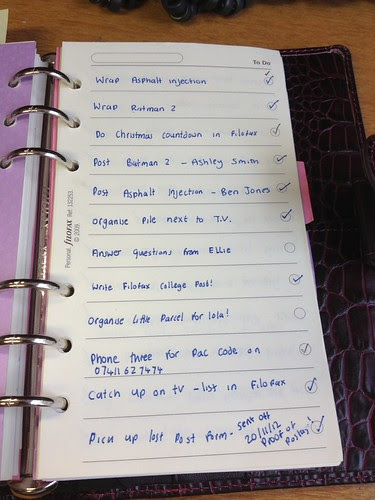 To Do
Wrap Asphalt injection
Wrap Batman 2
Do Christmas countdown in Filofax
Post Batman 2 - Ashley Smith
Post Asphalt Injection - Ben Jones
Organise Pile next to T.V.
Answer questions from Ellie
Write Filofax College Post!
Organise Little Parcel for Lola!
Phone three for Pac code on
07411627474
Catch up on TV - list in Filofax
Pick up lost Post form - sent off
20/11/12
Proof of
Postage!
Personal filofax Ref 132953
© 2009.